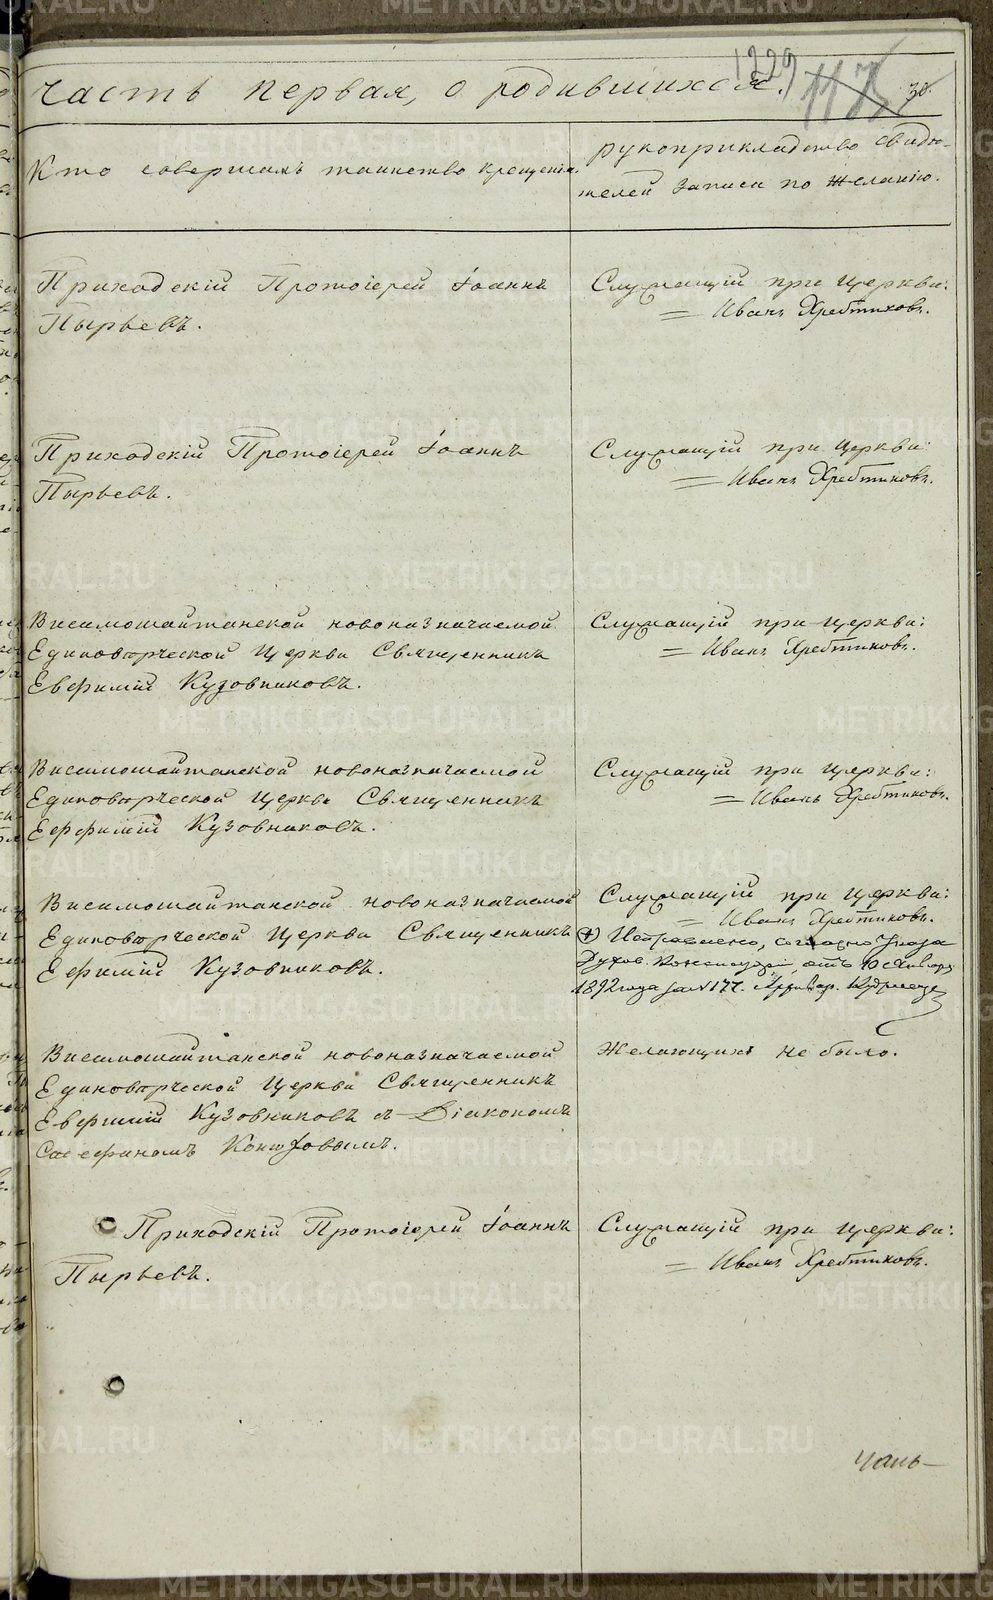 Часть первая, о родившихся.
1229
30.
Кто совершалъ таинство крещенія.
рукоприкладство свидѣ-
телей записи по желанію.
Приходскій Протоіерей Іоаннъ
Пырьевъ.
Служащій при церкви:
= Иванъ Хребтиковъ.
Приходскій Протоіерей Іоаннъ
Пырьевъ.
Служащій при церкви:
= Иванъ Хребтиковъ.
Висимошайтанской новоназначаемой
Единовѣрческой Церкви Священникъ
Евфимій Кузовниковъ.
Служащій при церкви:
= Иванъ Хребтиковъ.
Висимошайтанской новоназначаемой
Единовѣрческой Церкви Священникъ
Евфимій Кузовниковъ.
Служащій при церкви:
= Иванъ Хребтиковъ.
Висимошайтанской новоназначаемой
Единовѣрческой Церкви Священникъ
Ефимій Кузовниковъ.
Служащій при Церкви:
= Иванъ Хребтиковъ.
(+) Исправлено, согласно Указа
Духов. Консисторіи, отъ 10 Января
1892 года за № 177.
Висимошайтанской новоназначаемой
Единовѣрческой Церкви Священникъ
Евфимій Кузовниковъ съ Діакономъ
Желающихъ не было.
Приходскій Протоіерей Іоаннъ
Пырьевъ.
Служащій при церкви:
= Иванъ Хребтиковъ.
METRIKI.GASO-URAL.RU